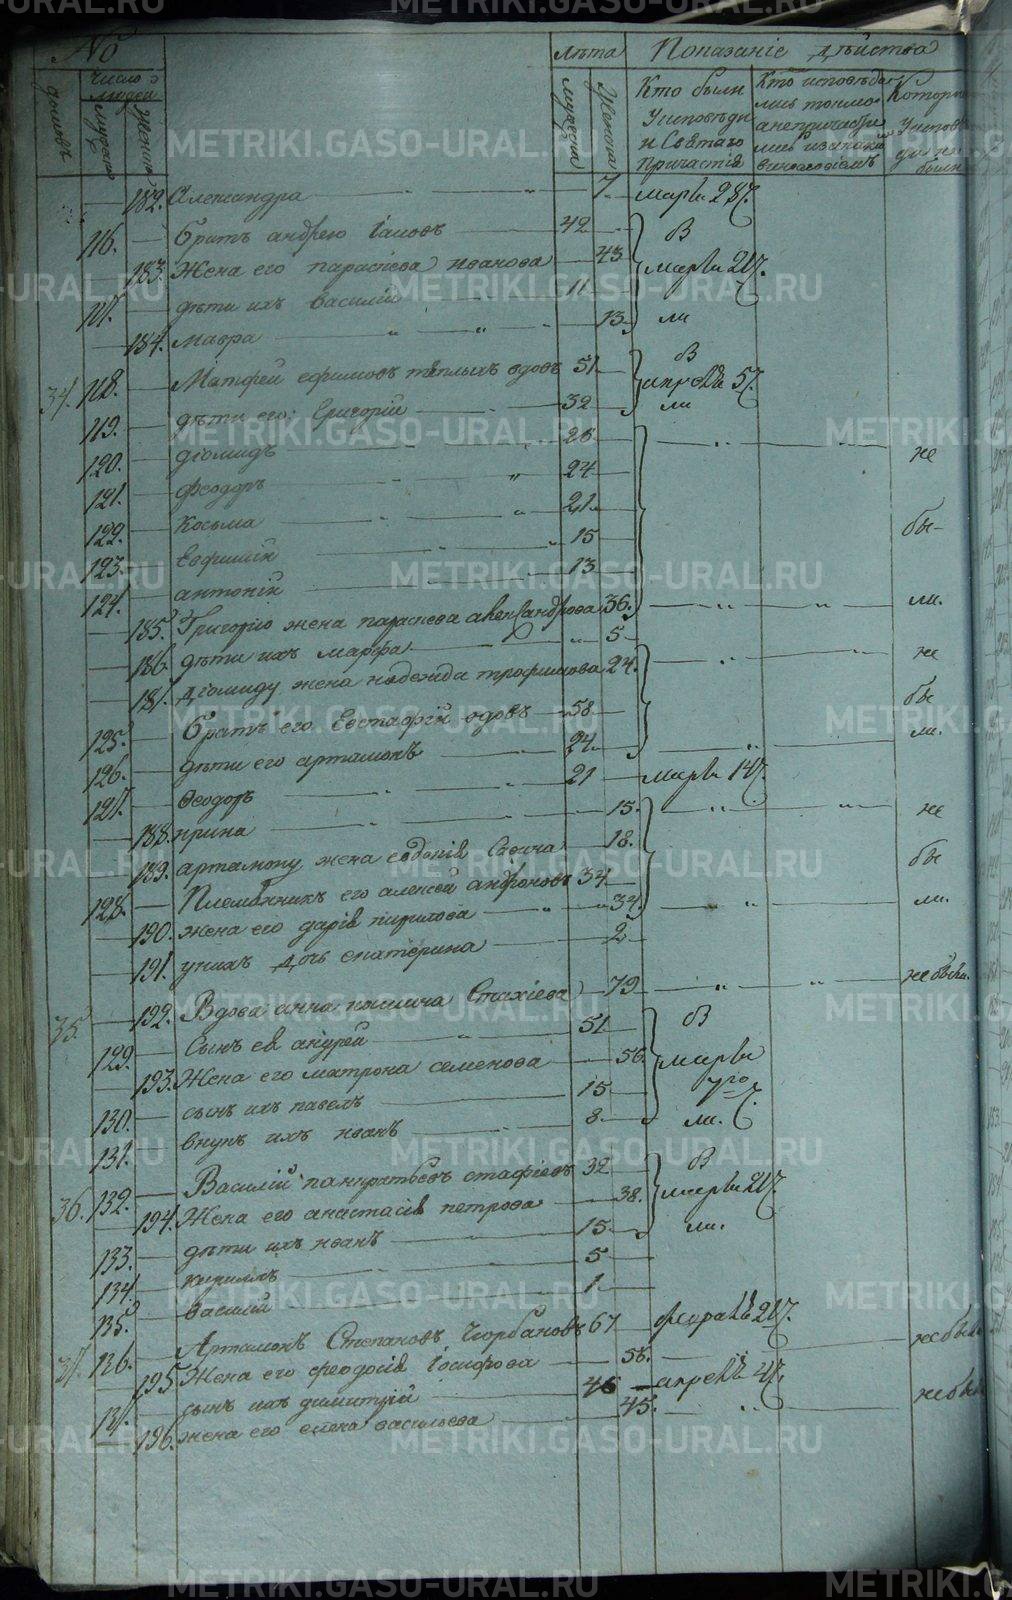 № Лѣта Показанiе дѣйства
домовъ Число людей мужеска женска мужска женска Кто были у исповѣди и Святаго Причастiя Кто исповѣдались токмо а не причастились и за какимъ винословiемъ Которые у исповѣди не были
182. Александра 7 марта 28
116. братъ андрею Iаковъ 42 В
183. Жена его параскева иванова 43 марта
117. дѣти ихъ василiй 11
184. мавра 13 ли
34. 118. Матфей ефимовъ теплыхъ вдовъ 51 В апрелѣ 5
119. дѣти его: Григорiй 32 ли
120. дiомидъ не
121. феодоръ 24
122. косьма 21 бы-
123. Евфимiй 15
124. антонiй 13 ли.
185. Григорiю жена параскева александрова 36.
186. дѣти ихъ марфа 5 не
187. дiомиду жена надежда трофимова 24. бы
125. братъ его Евстафiй вдовъ 58 ли.
126. дѣти его артамонъ 24
127. Феодоръ 21 марта 14
188. ирина 15. не
189. артамону жена евдокiя 18. бы
128. Племянникъ его алексей андроновъ 34 ли.
190. жена его дарiя кирилова 34
191. у нихъ дочь екатерина 2
35. 192. Вдова анна Стахiева 79 не были.
129. Сынъ ея андрей 51 В
193. Жена его матрона семенова 56 марта
130. сынъ ихъ павелъ 15 7го
131. внукъ ихъ иванъ 8 ли.
36. 132. Василiй панкратьевъ стафѣевъ 32 В
194. Жена его анастасiя петрова 38. марта
133. дѣти ихъ иванъ 15 ли.
134. кирилъ 5
135. василiй 1
37. 136. Артамонъ Степановъ Чюрбановъ 67 февралѣ
195 Жена его феодосiя Iосифова не были
137. сынъ ихъ димитрiй 46 апрелѣ 4
196. жена его елена васильева 45. не были
METRIKI.GASO-URAL.RU